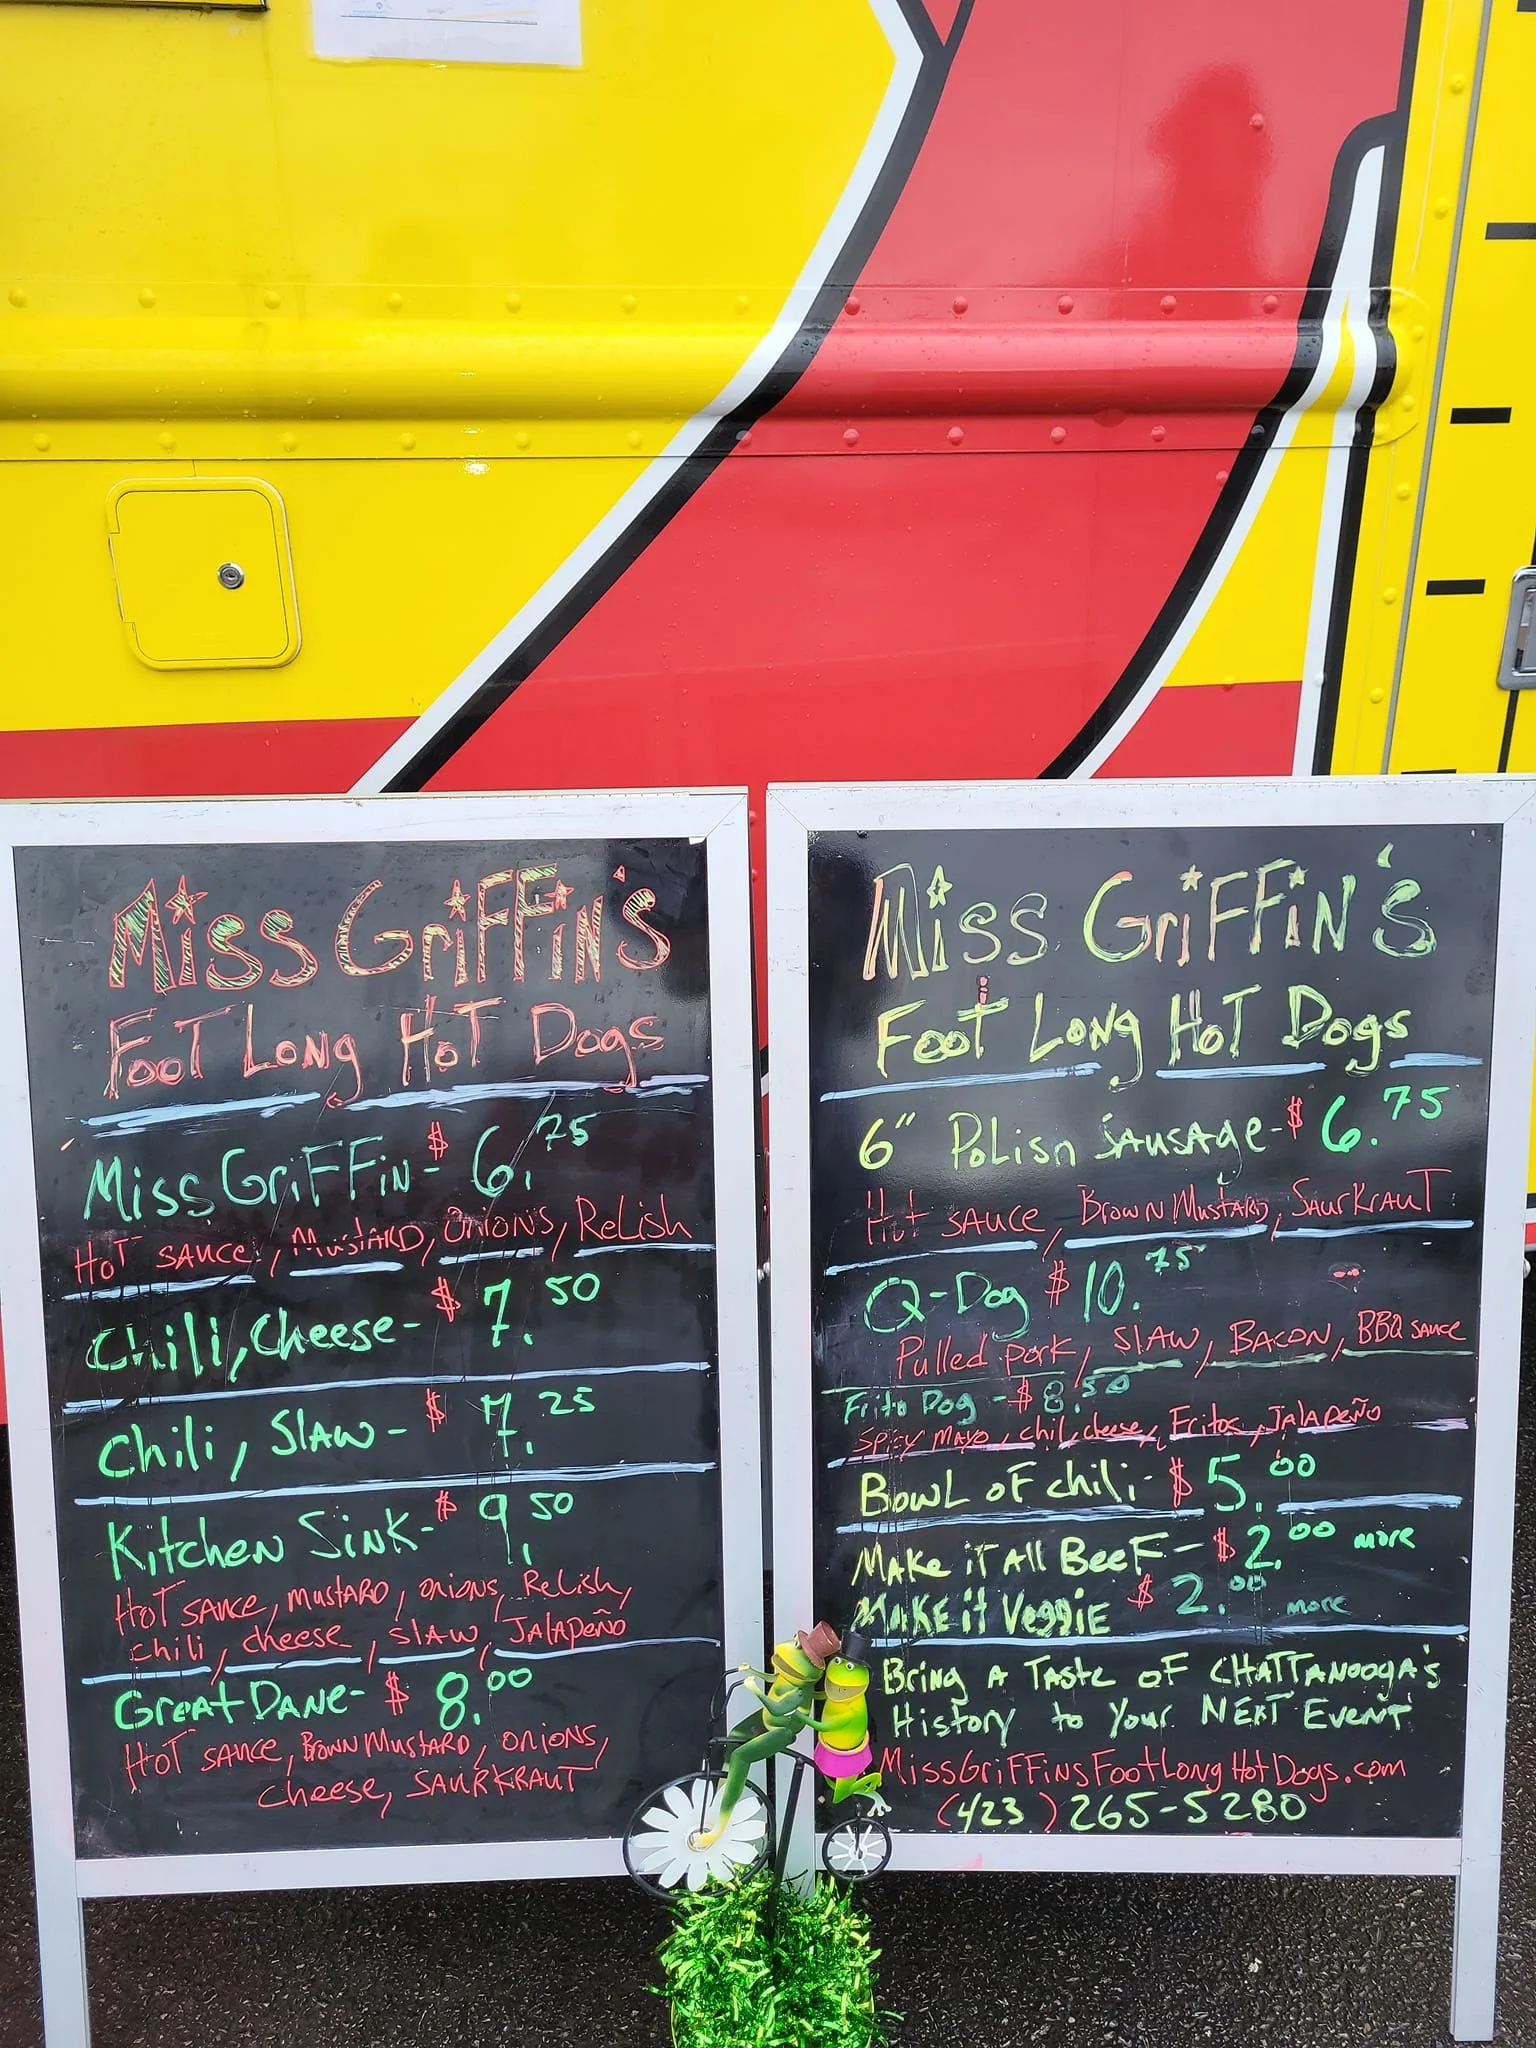 Miss Griffin's
Foot Long Hot Dogs
Miss Griffin - $6.75
Hot sauce, Mustard, Onions, Relish
Chili, Cheese - $7.50
Chili, Slaw - $7.25
Kitchen Sink - $9.50
Hot sauce, mustard, onions, Relish,
Chili, cheese, slaw, Jalapeño
Great Dane - $8.00
Hot sauce, Brown Mustard, onions,
Cheese, Saurkraut
Miss Griffin's
Foot Long Hot Dogs
6" Polish Sausage - $6.75
Hot sauce, Brown Mustard, Saurkraut
Q-Dog $10.75
Pulled pork, Slaw, Bacon, BBQ sauce
Frito Dog - $8.50
Spicy mayo, chili, cheese, Fritos, Jalapeño
Bowl of chili - $5.00
Make it All Beef - $2.00 more
Make it Veggie $2.00 more
Bring A Taste of Chattanooga's
History to Your Next Event
MissGriffinsFootLongHotDogs.com
(423) 265-5280